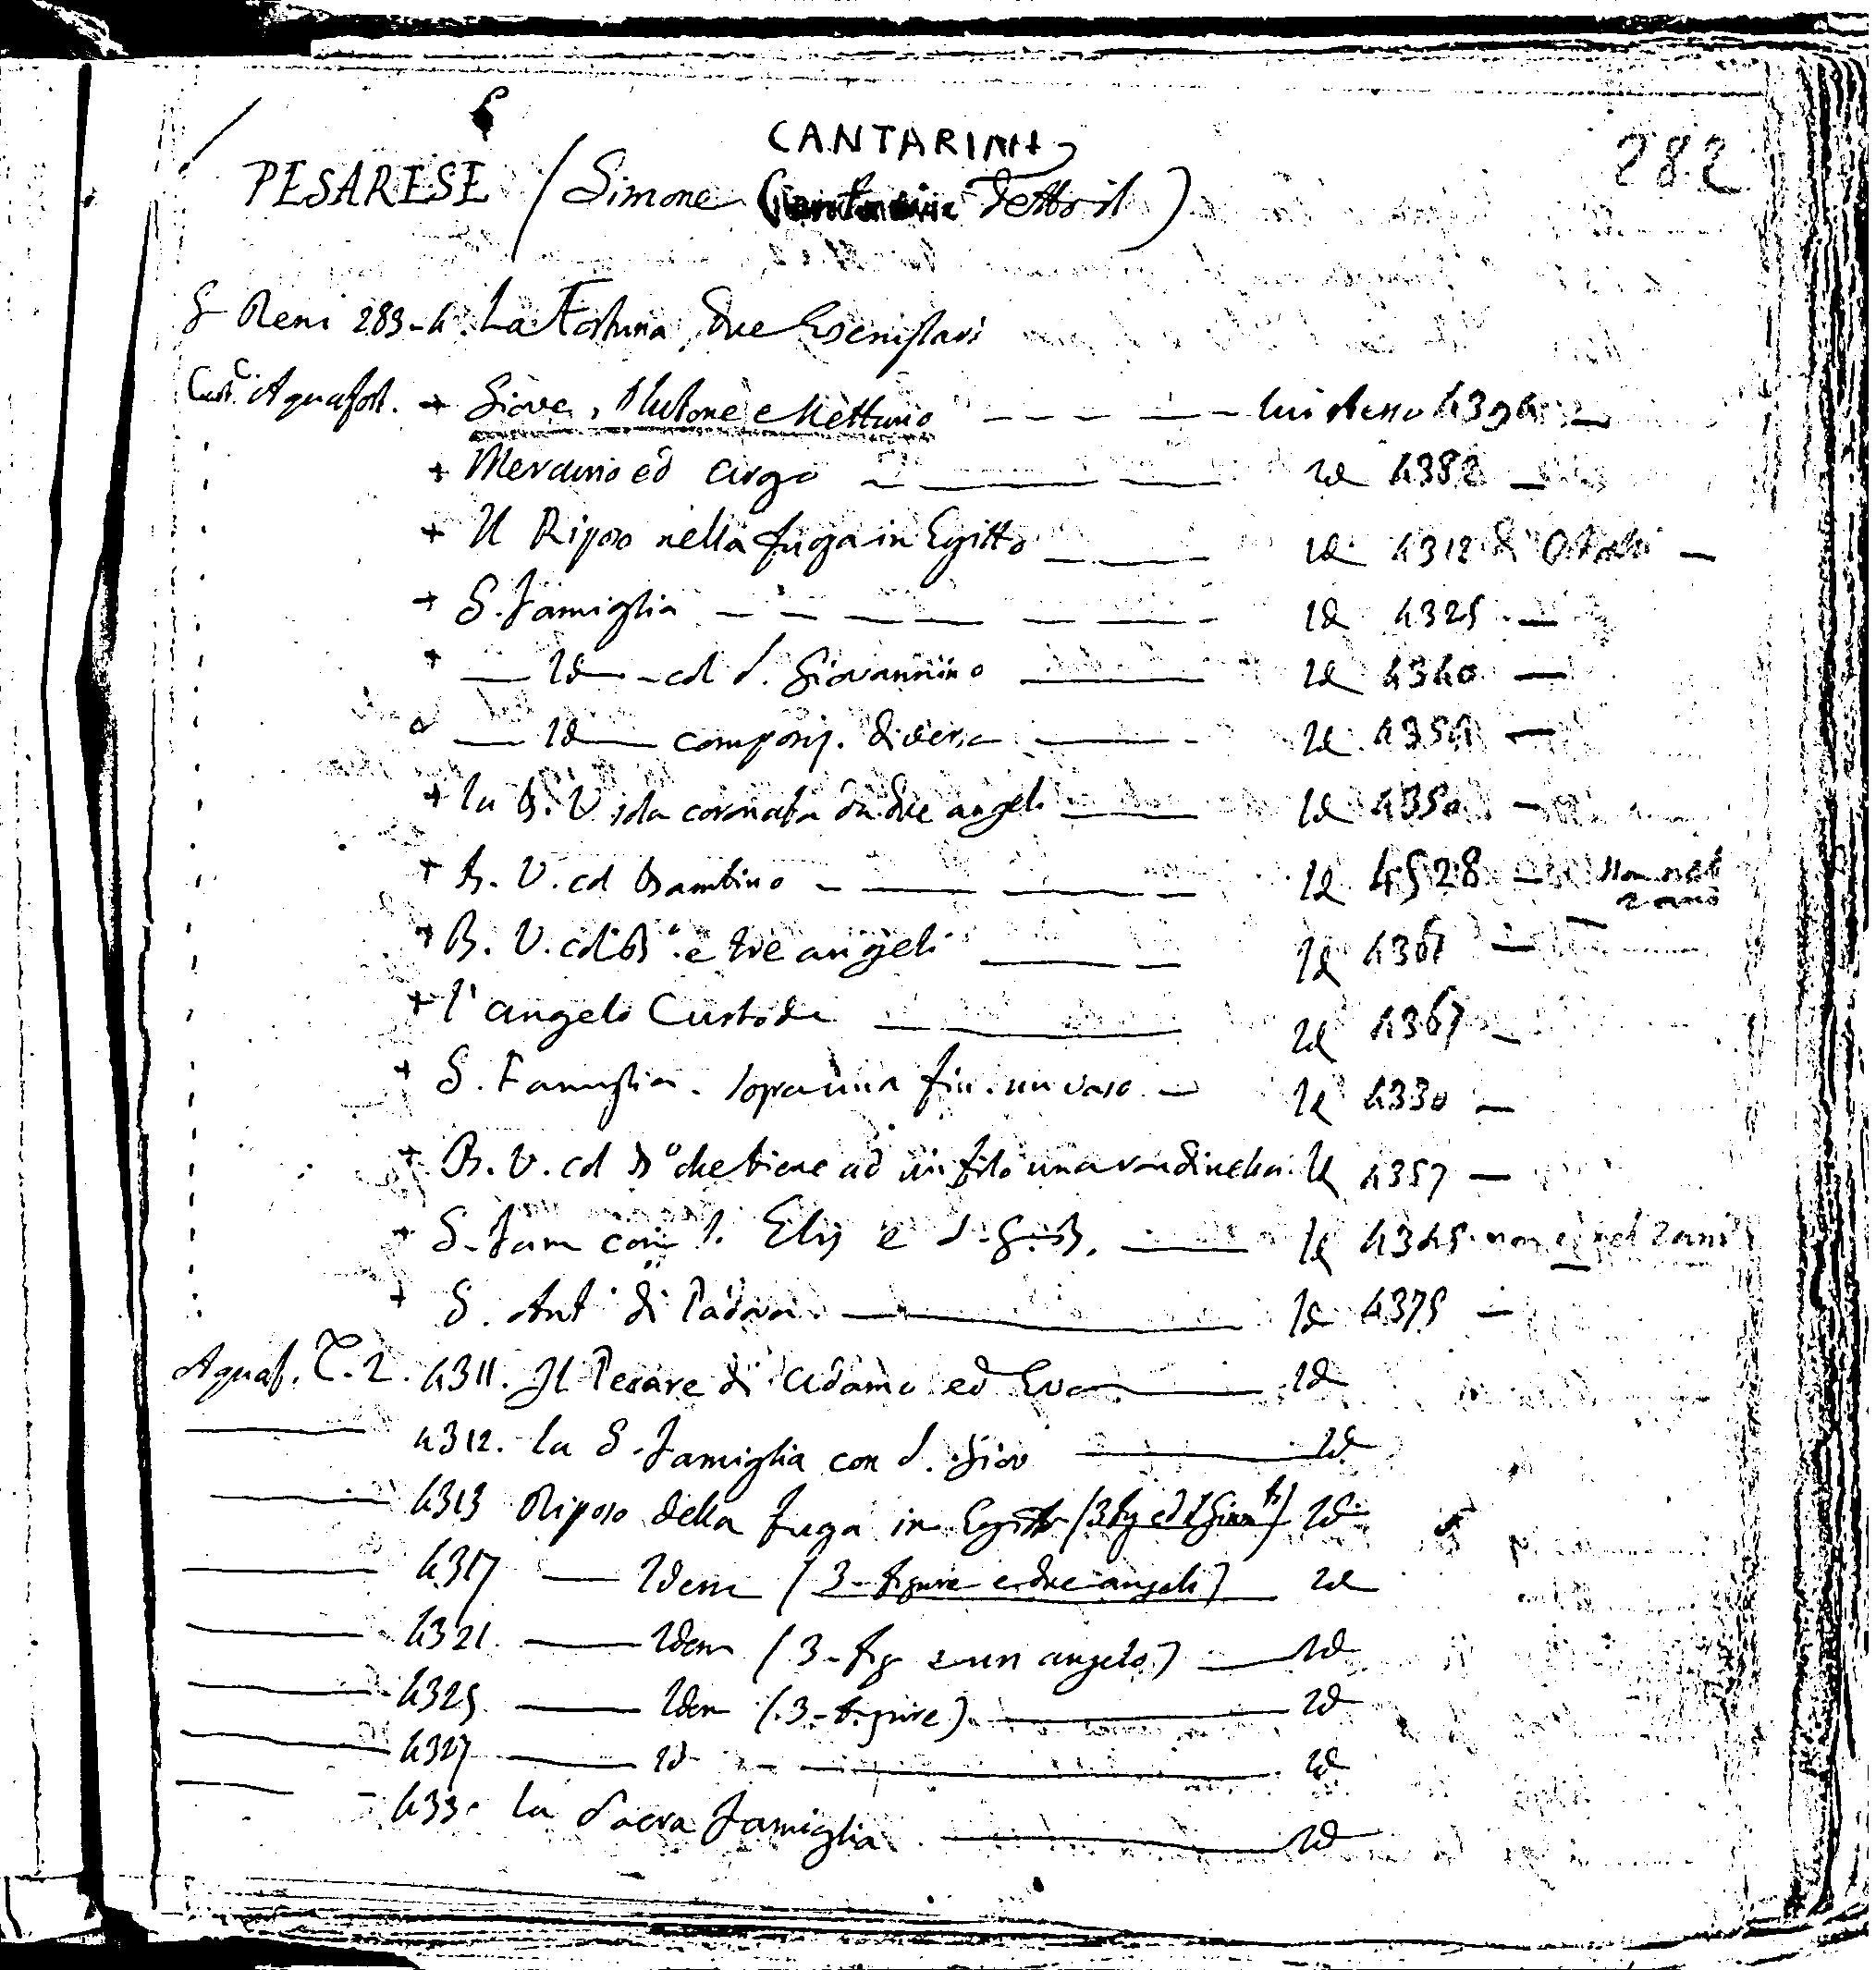 282
CANTARINI
PESARESE (Simone detto il)
G Reni 283-4. La Fortuna, due Esemplari
Cart. C. Aquafort. + Giove, Plutone e Nettuno — lui stesso 4394 —
+ Mercurio ed Argo — Id 4382 —
+ Il Riposo nella fuga in Egitto — Id 4312 di —
+ S. Famiglia — Id 4325 —
+ — Id — col S. Giovannino — Id 4340 —
— Id — composiz. diversa — Id 4354 —
+ la B. V. sola coronata da due angeli — Id 4350 —
+ B. V. col Bambino — Id 4528 — Non nel Zani
+ B. V. col Bº. e tre angeli — Id 4361 —
+ l'angelo Custode — Id 4367 —
+ S. Famiglia. sopra una fin. un vaso — Id 4330 —
+ B. V. col Bº che tiene ad un filo una rondinella Id 4357 —
+ S. Fam con S. Elis e S. G. B. — Id 4345 non è nel Zani
+ S. Ant di Padova — Id 4375 —
Aquaf. T. 2. 4311. Il Pecare di Adamo ed Eva — Id
— 4312. la S. Famiglia con S. Giov — Id
— 4313 Riposo della fuga in Egitto (3 fig ed S Giov B) Id
— 4317 — Idem (3 - figure e due angeli) Id
— 4321. — Idem (3 - fig e un angelo) — Id
— 4325 — Idem (3 - figure) — Id
— 4327 — Id — Id
— 4330 la Sacra Famiglia — Id